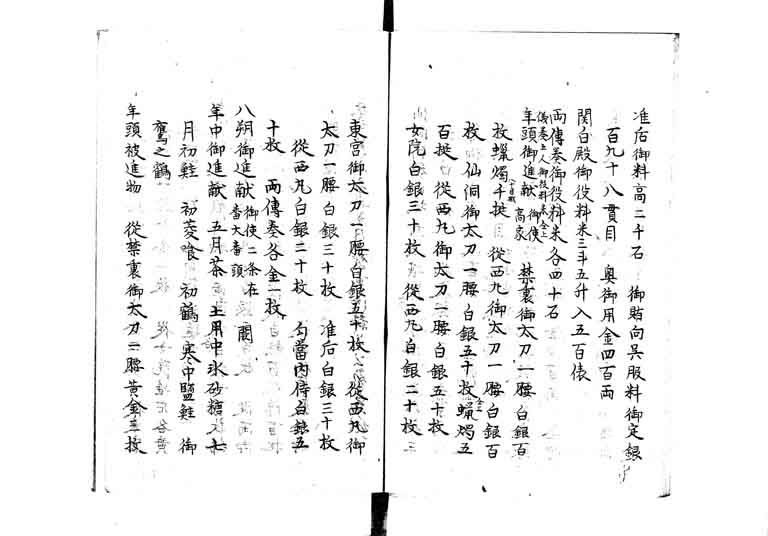 准后御料高二千石　御賄向呉服料御定銀
百九十八貫目　奥御用金四百両
関白殿御役料米三斗五升入五百俵
両傳奏御役料米各四十石
年頭御進献 御使高家　禁裏御太刀一腰白銀百
枚蠟燭千挺　從西丸御太刀一腰白銀百
枚　仙洞御太刀一腰白銀五十枚蠟燭五
百挺　從西丸御太刀一腰白銀五十枚
女院白銀三十枚　從西丸白銀二十枚
東宮御太刀一腰白銀五十枚　從西丸御
太刀一腰白銀三十枚　准后白銀三十枚
從西丸白銀二十枚　勾當内侍白銀五
十枚　両傳奏各金一枚
八朔御進献 御使二条在番大番頭
年中御進献　五月茶　土用中氷砂糖　七
月初鮭　初菱喰　初鶴　寒中塩鮭　御
鷹之鶴
年頭被進物　從禁裏御太刀一腰黄金三枚